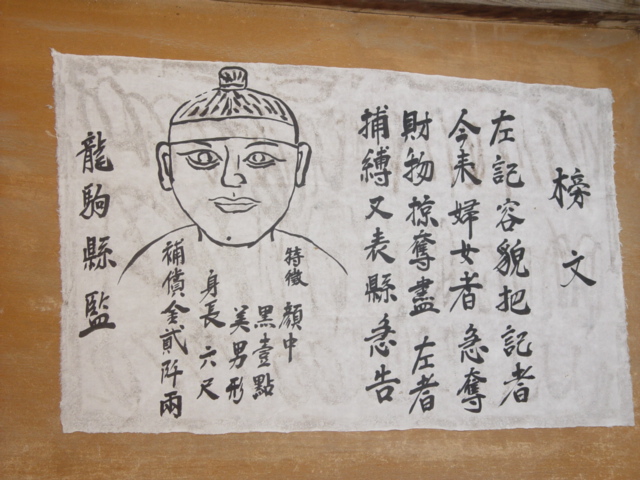 榜文
左記容貌把記者
今來婦女者急奪
財物掠奪盡左者
捕縛又表縣急告
特徵 顔中
黑壹點
美男形
身長六尺
補償金貳阡兩
龍駒縣監